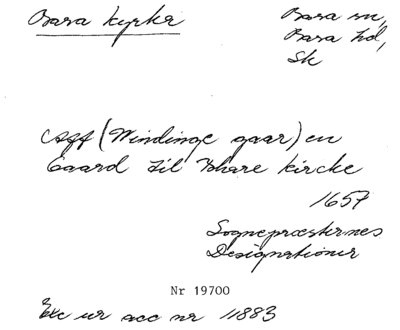 Bara kyrka
Bara sn,
Bara hd,
Sk
Aff (Windinge gaar) en
Gaard til Bhare kircke
1657
Sognepræsternes
Designationer
Nr 19700
Exc ur acc nr 11883